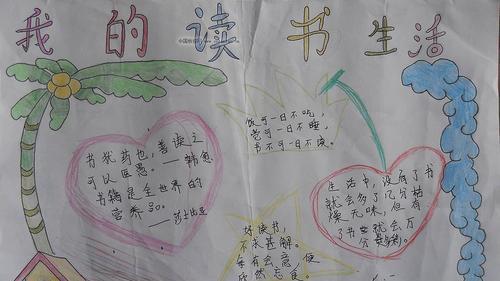 我的读书生活
书犹药也，善读之
可以医愚。——韩愈
书籍是全世界的
营养品。——莎士比亚
饭可一日不吃，
觉可一日不睡，
书不可一日不读。
好读书，
不求甚解。
每有会意，便
欣然忘食。
生活中，没有了书
就会多了几分枯
燥无味，但有
了书